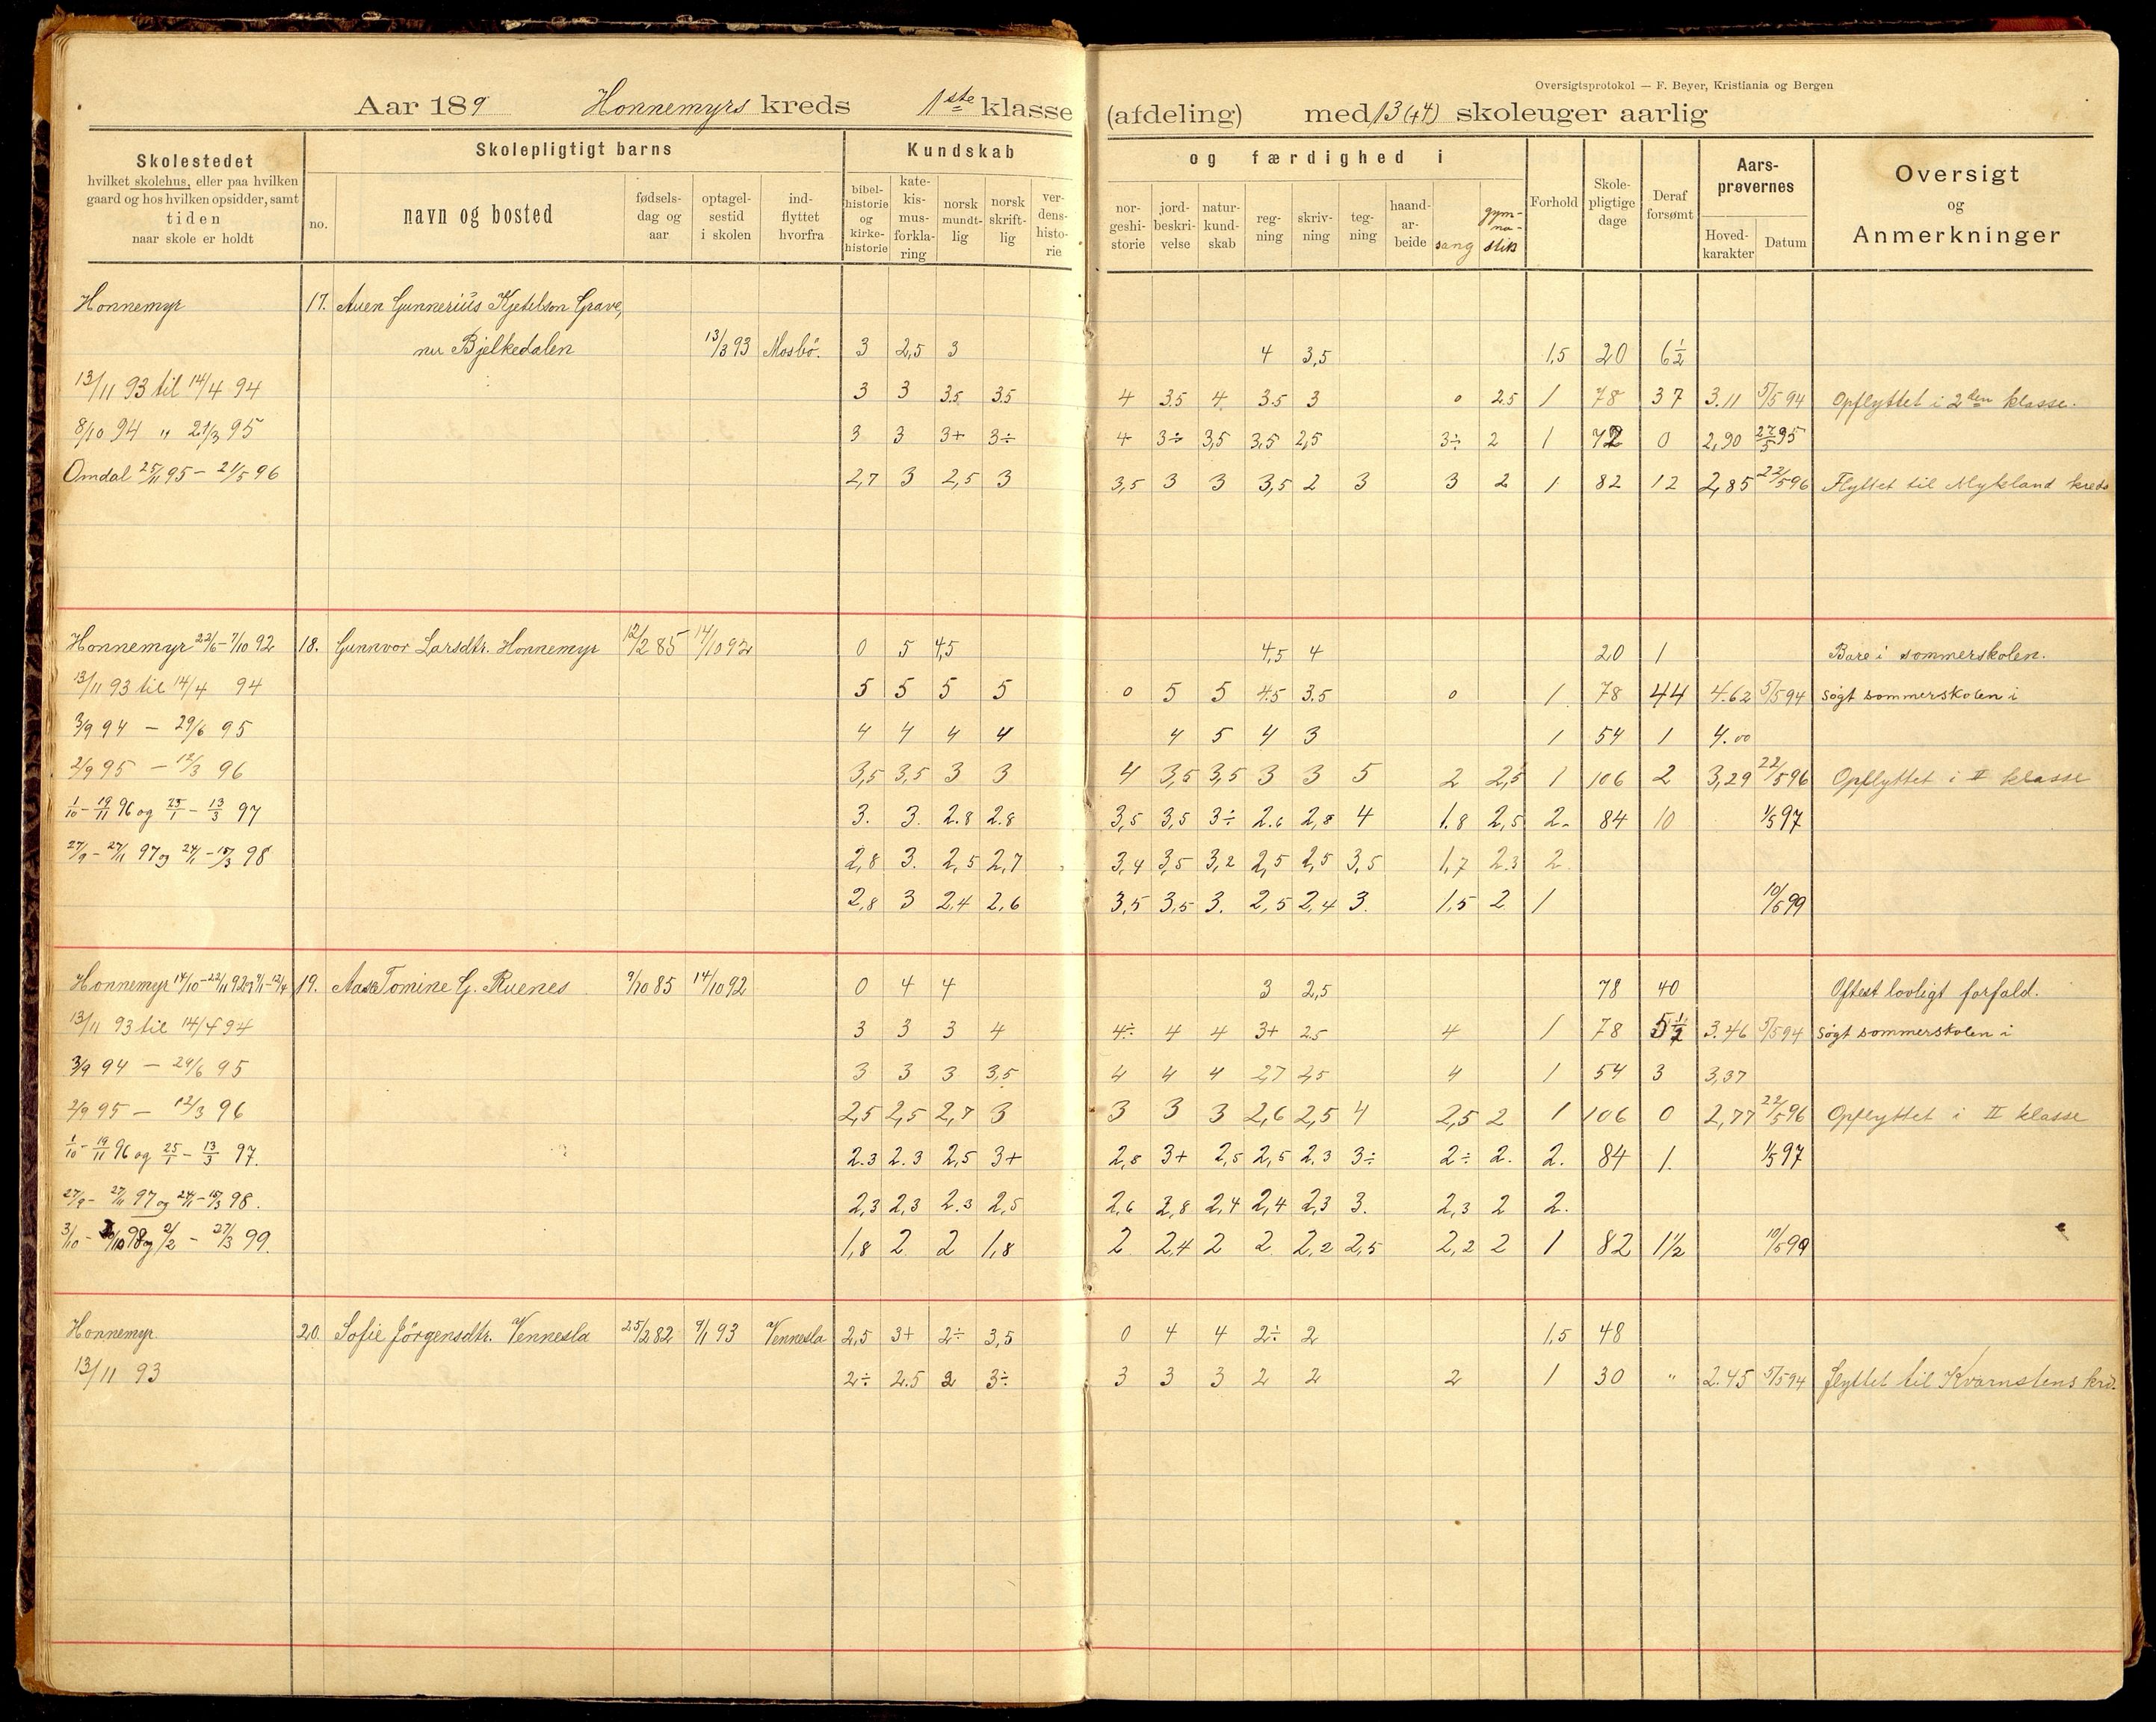 Oversigtsprotokol — F. Beyer, Kristiania og Bergen
Aar 189 Honnemyrs kreds 1ste klasse (afdeling) med 13 (+4) skoleuger aarlig
Skolestedet
hvilket skolehus, eller paa hvilken
gaard og hos hvilken opsidder, samt
tiden
naar skole er holdt
Skolepligtigt barns
no.
navn og bosted
fødsels-
dag og
aar
optagel-
sestid
i skolen
ind-
flyttet
hvorfra
Kundskab og færdighed i
bibel-
historie
og
kirke-
historie
kate-
kis-
mus-
forkla-
ring
norsk
mundt-
lig
norsk
skrift-
lig
ver-
dens-
histo-
rie
nor-
geshi-
storie
jord-
beskri-
velse
natur-
kund-
skab
reg-
ning
skriv-
ning
teg-
ning
haand-
ar-
beide
sang
gym-
na-
stik
Forhold
Skole-
pligtige
dage
Deraf
forsømt
Aars-
prøvernes
Hoved-
karakter
Datum
Oversigt
og
Anmerkninger
Honnemyr 17. Auen Gunnerius Kjetelson Grave,
nu Bjelkedalen 13/3 93 Mosbö. 3 2,5 3 4 3,5 1,5 20 6 1/2
13/11 93 til 14/4 94 3 3 3.5 3.5 4 3.5 4 3.5 3 0 2.5 1 78 37 3.11 5/5 94 Opflyttet i 2den klasse.
8/10 94 " 21/3 95 3 3 3+ 3÷ 4 3÷ 3,5 3,5 2,5 3÷ 2 1 72 0 2,90 27/5 95
Omdal 25/11 95 — 21/5 96 2,7 3 2,5 3 3,5 3 3 3,5 2 3 3 2 1 82 12 2,85 22/5 96 Flyttet til Mykland kreds
Honnemyr 22/6 – 7/10 92 18. Gunnvor Larsdtr. Honnemyr 12/2 85 14/10 92 0 5 4,5 4,5 4 20 1 Bare i sommerskolen.
13/11 93 til 14/4 94 5 5 5 5 0 5 5 4.5 3.5 0 1 78 44 4.62 5/5 94 søgt sommerskolen i
3/9 94 — 29/6 95 4 4 4 4 4 5 4 3 1 54 1 4.00
2/9 95 — 12/3 96 3,5 3,5 3 3 4 3,5 3,5 3 3 5 2 2,5 1 106 2 3,29 22/5 96 Opflyttet i II klasse
1/10 – 19/11 96 og 25/1 – 13/3 97 3. 3. 2.8 2.8 3,5 3,5 3÷ 2.6 2,8 4 1.8 2,5 2. 84 10 1/5 97
27/9 – 27/11 97 og 24/1 – 15/3 98 2,8 3. 2,5 2,7 3,4 3,5 3,2 2,5 2,5 3,5 1,7 2.3 2.
2,8 3 2,4 2,6 3,5 3,5 3. 2,5 2,4 3. 1,5 2 1 10/5 99
Honnemyr 14/10 – 22/11 92 og 9/1 – 12/4 19. Aase Tomine G. Ruenes 9/10 85 14/10 92 0 4 4 3 2,5 78 40 Oftest lovligt forfald.
13/11 93 til 14/4 94 3 3 3 4 4÷ 4 4 3+ 2.5 4 1 78 5 1/2 3.46 5/5 94 søgt sommerskolen i
3/9 94 — 29/6 95 3 3 3 3,5 4 4 4 2,7 2,5 4 1 54 3 3,37
2/9 95 — 12/3 96 2,5 2,5 2,7 3 3 3 3 2,6 2,5 4 2,5 2 1 106 0 2,77 22/5 96 Opflyttet i II klasse
1/10 – 19/11 96 og 25/1 – 13/3 97. 2.3 2.3 2,5 3+ 2,8 3+ 2,5 2,5 2.3 3÷ 2÷ 2. 2. 84 1. 1/5 97
27/9 – 27/11 97 og 24/1 – 15/3 98. 2,3 2,3 2.3 2,5 2,6 2,8 2,4 2,4 2,3 3. 2,3 2 2.
98 og – 27/3 99. 1,8 2 2 1,8 2 2,4 2 2 2,2 2,5 2,2 2 1 82 1 1/2 10/5 99
Honnemyr 20. Sofie Jörgensdtr. Vennesla 25/2 82 9/1 93 Vennesla 2,5 3+ 2÷ 3,5 0 4 4 2÷ 2 1,5 48
13/11 93 2÷ 2.5 2 3÷ 3 3 3 2 2 2 1 30 " 2.45 5/5 94 flyttet til Kvarnstens krd.